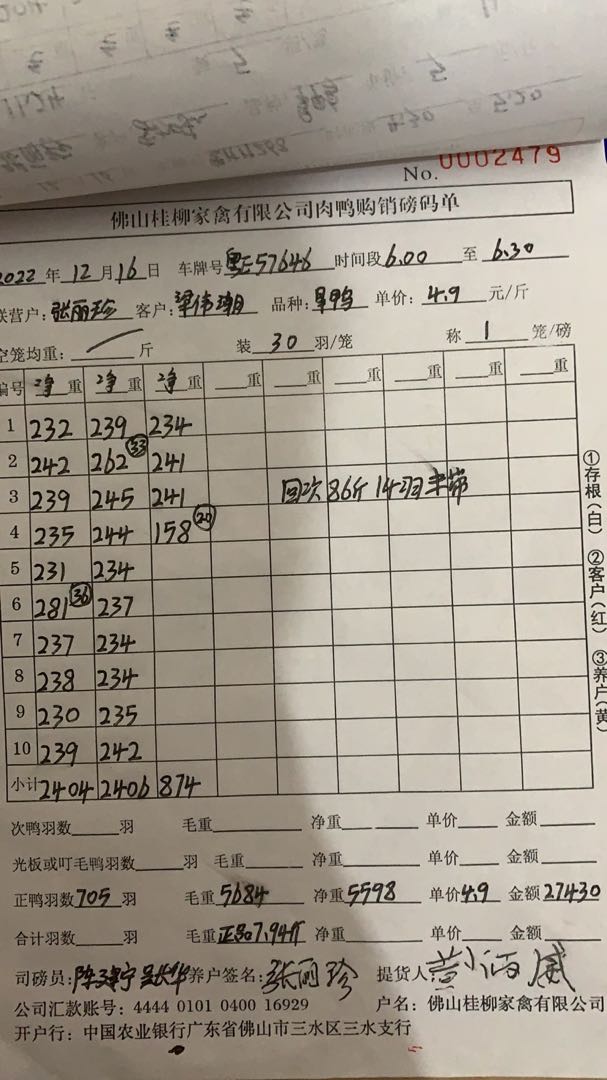 No. 0002479
佛山桂柳家禽有限公司肉鸭购销磅码单
2022年12月16日 车牌号粤E57646 时间段6.00至6.30
联营户:张丽珍 客户:梁伟潮 品种: 单价:4.9元/斤
空笼均重:斤 装30羽/笼 称1笼/磅
编号 净重 净重 净重 重 重 重 重 重 重
1 232 239 234
2 242 262 33 241
3 239 245 241 回次86斤14羽
4 235 244 158 20
5 231 234
6 281 36 237
7 237 234
8 238 234
9 230 235
10 239 242
小计 2404 2406 874
次鸭羽数羽 毛重 净重 单价 金额
光板或叮毛鸭羽数羽 毛重 净重 单价 金额
正鸭羽数705羽 毛重5684 净重5598 单价4.9 金额27430
合计羽数羽 毛重正品7.94斤 净重 单价 金额
司磅员: 养户签名:张丽珍 提货人
公司汇款账号:4444 0101 0400 16929 户名:佛山桂柳家禽有限公司
开户行:中国农业银行广东省佛山市三水区三水支行
①存根(白) ②客户(红) ③养户(黄)